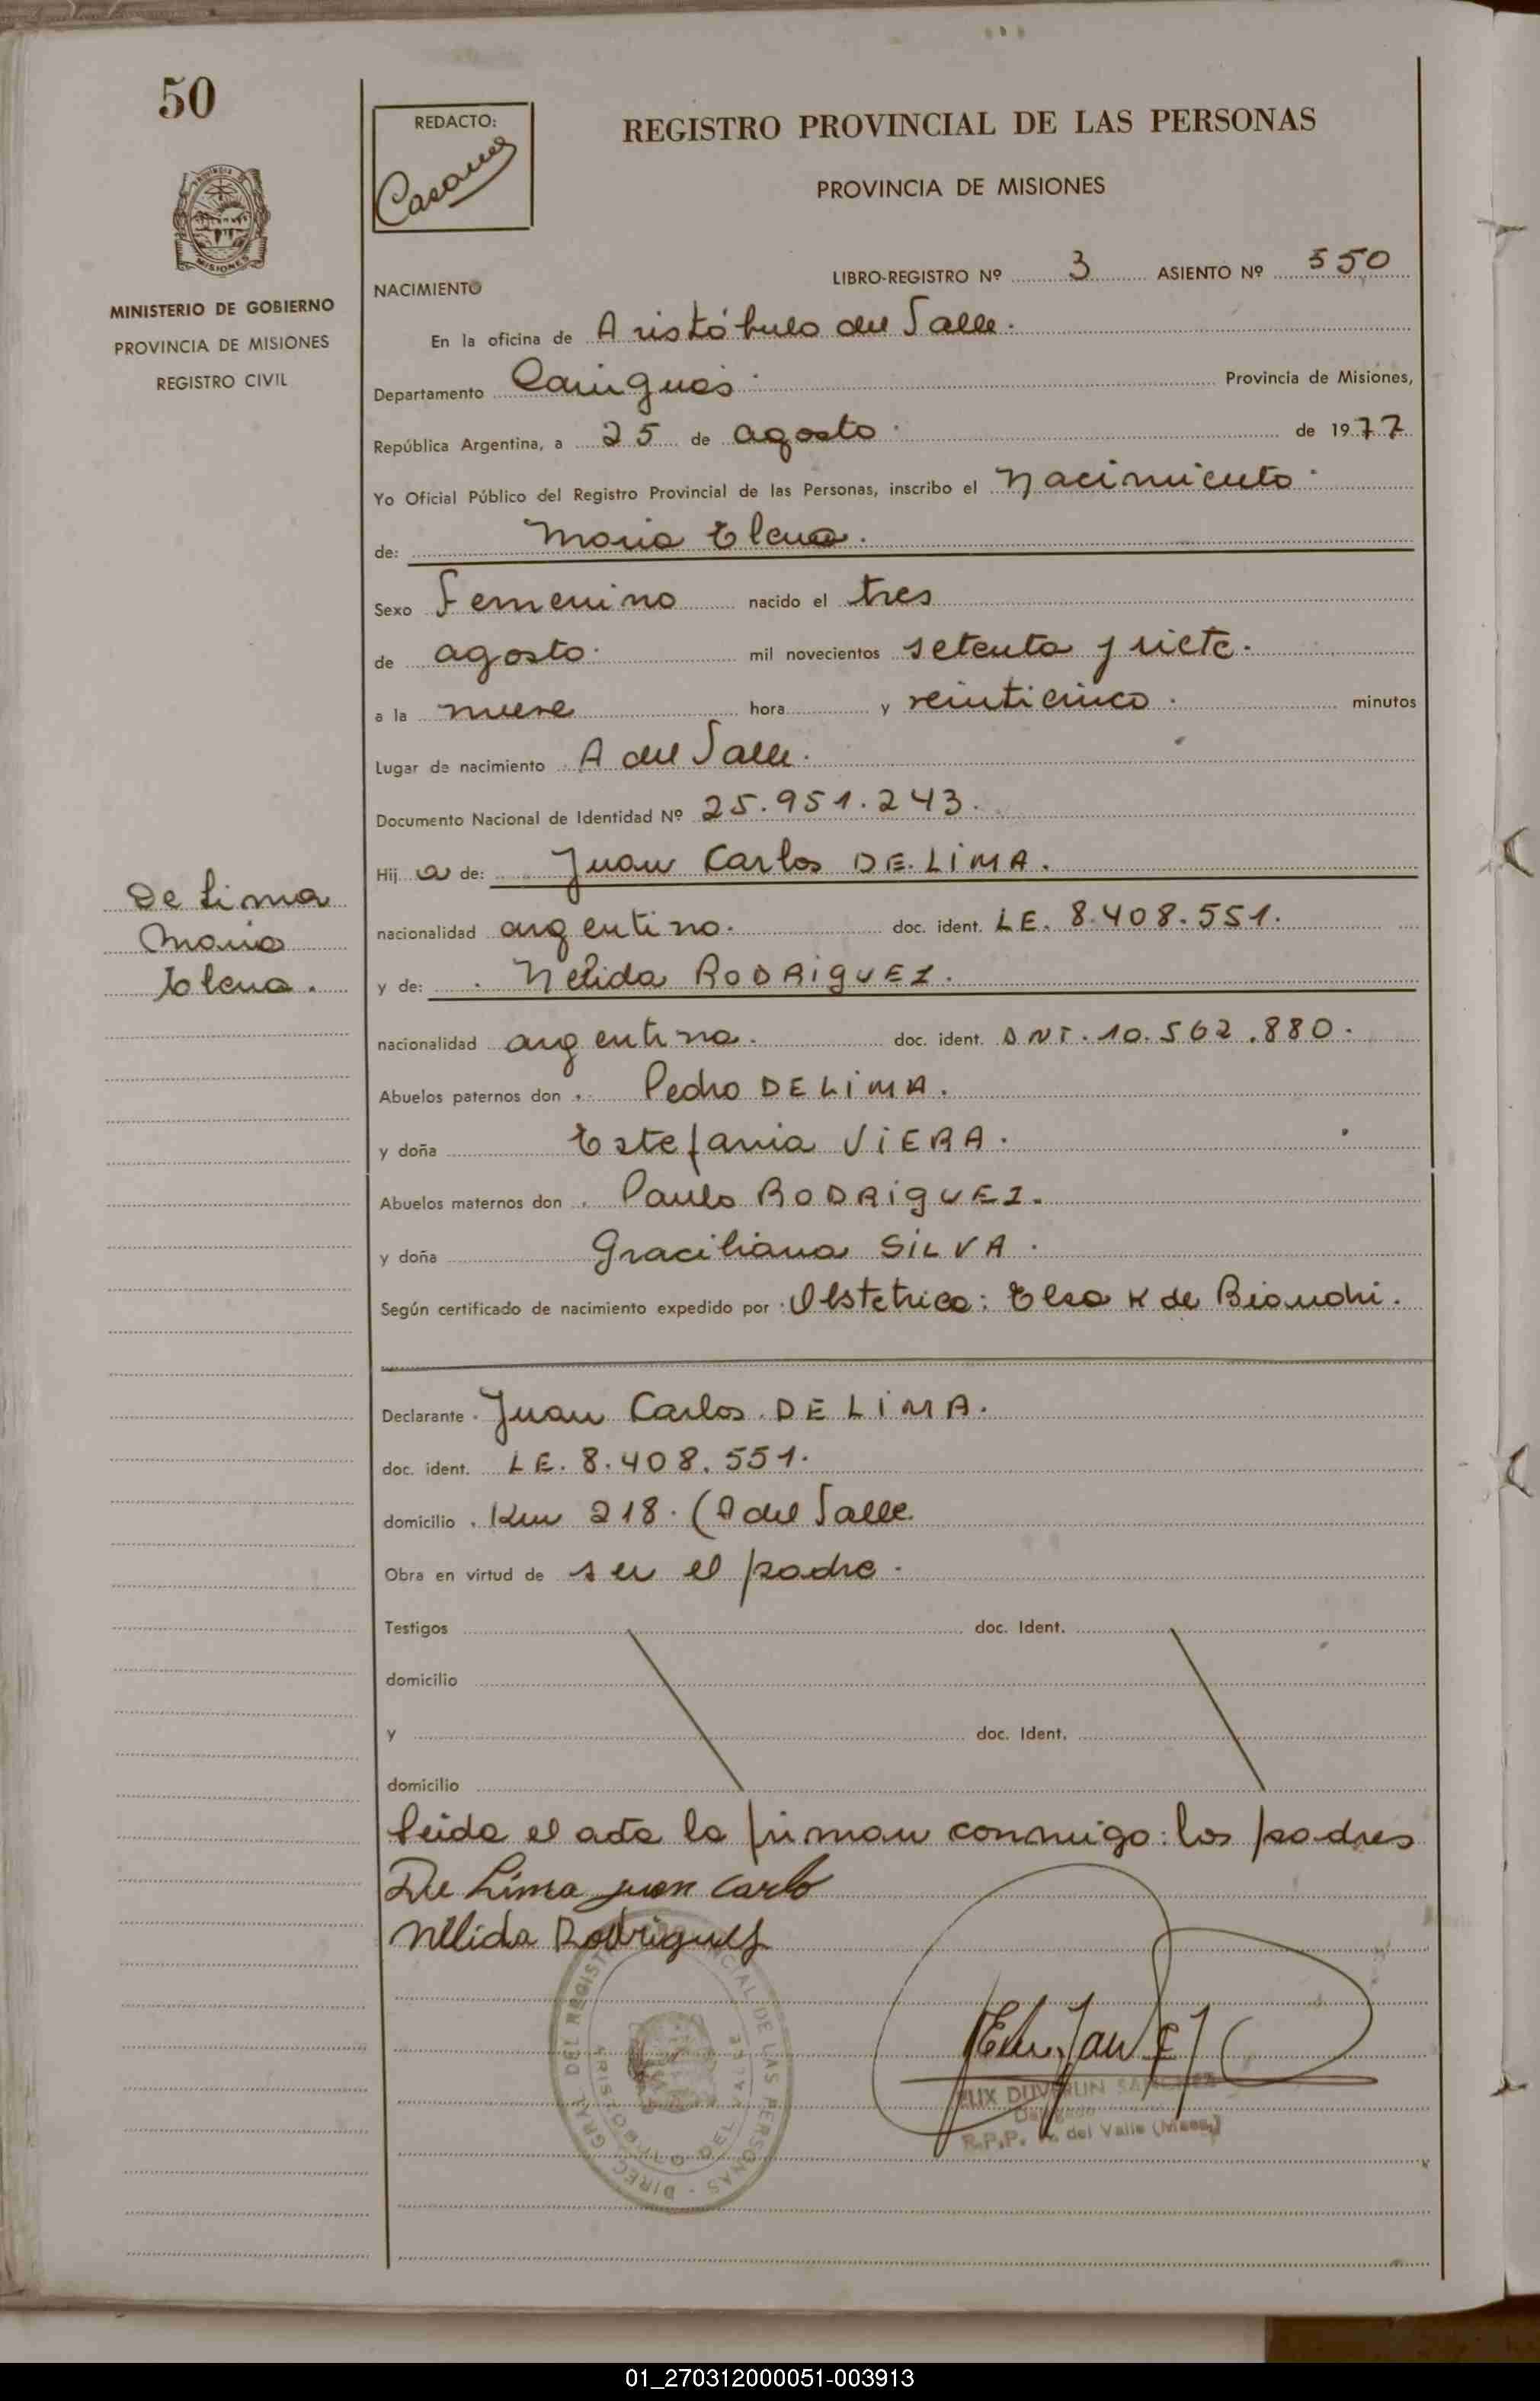 50
REDACTO:
REGISTRO PROVINCIAL DE LAS PERSONAS
PROVINCIA DE MISIONES
MINISTERIO DE GOBIERNO
PROVINCIA DE MISIONES
REGISTRO CIVIL
LIBRO-REGISTRO Nº 3 ASIENTO Nº 550
NACIMIENTO
En la oficina de Aristóbulo del Valle.
Departamento Cainguás. Provincia de Misiones,
República Argentina, a 25 de agosto. de 1977
Yo Oficial Público del Registro Provincial de las Personas, inscribo el Nacimiento.
de: María Elena.
Sexo Femenino nacido el tres
de agosto. mil novecientos setenta y siete.
a la nueve hora y veinticinco. minutos
Lugar de nacimiento A del Valle.
Documento Nacional de Identidad Nº 25.951.243.
Hij a de: Juan Carlos DE LIMA.
De Lima
María
Elena.
nacionalidad argentino. doc. ident. LE. 8.408.551.
y de: Nelida RODRIGUEZ.
nacionalidad argentina. doc. ident. DNI. 10.562.880.
Abuelos paternos don Pedro DE LIMA.
y doña Estefania VIERA.
Abuelos maternos don Paulo RODRIGUEZ.
y doña Graciliana SILVA.
Según certificado de nacimiento expedido por Obstetrica: Elsa K de Bianchi.
Declarante Juan Carlos DE LIMA.
doc. ident. LE. 8.408.551.
domicilio Km 218. (A del Valle.
Obra en virtud de ser el padre.
Testigos doc. Ident.
domicilio
y doc. Ident.
domicilio
leida el acta la firman conmigo: los padres
De Lima Juan Carlo
Nélida Rodriguez
DIREC. GRAL. DEL REGISTRO PROVINCIAL DE LAS PERSONAS
ARISTOBULO DEL VALLE
FELIX DUVERLIN SANCHEZ
Delegado
R.P.P. A. del Valle (Mnes.)
01_270312000051-003913